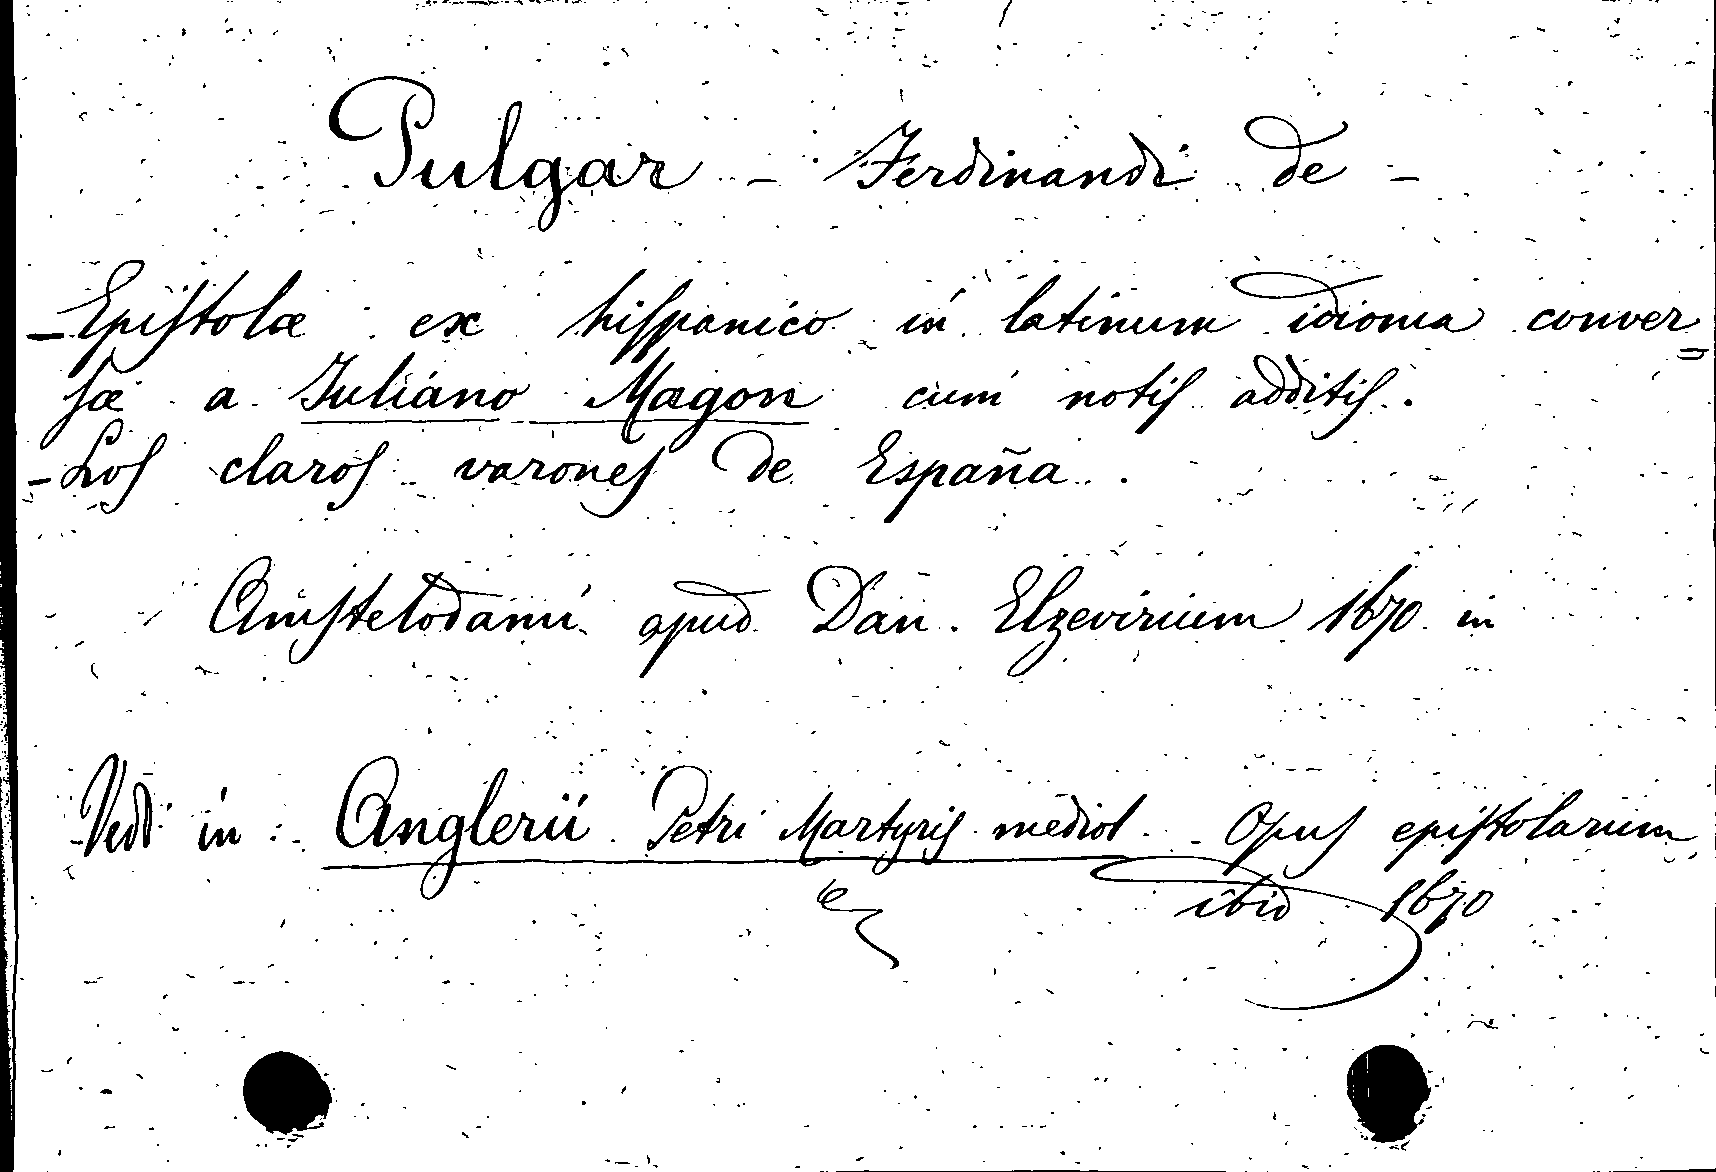 Pulgar - Ferdinandi de -
- Epistolæ ex hispanico in latinum idioma conver=
sæ a Iuliano Magon cum notis additis.
- Los claros varones de España.
Amstelodami apud Dan. Elzevirium 1670 in
Vedi in: Anglerii Petri Martyris mediol. Opus epistolarum
ibid 1670